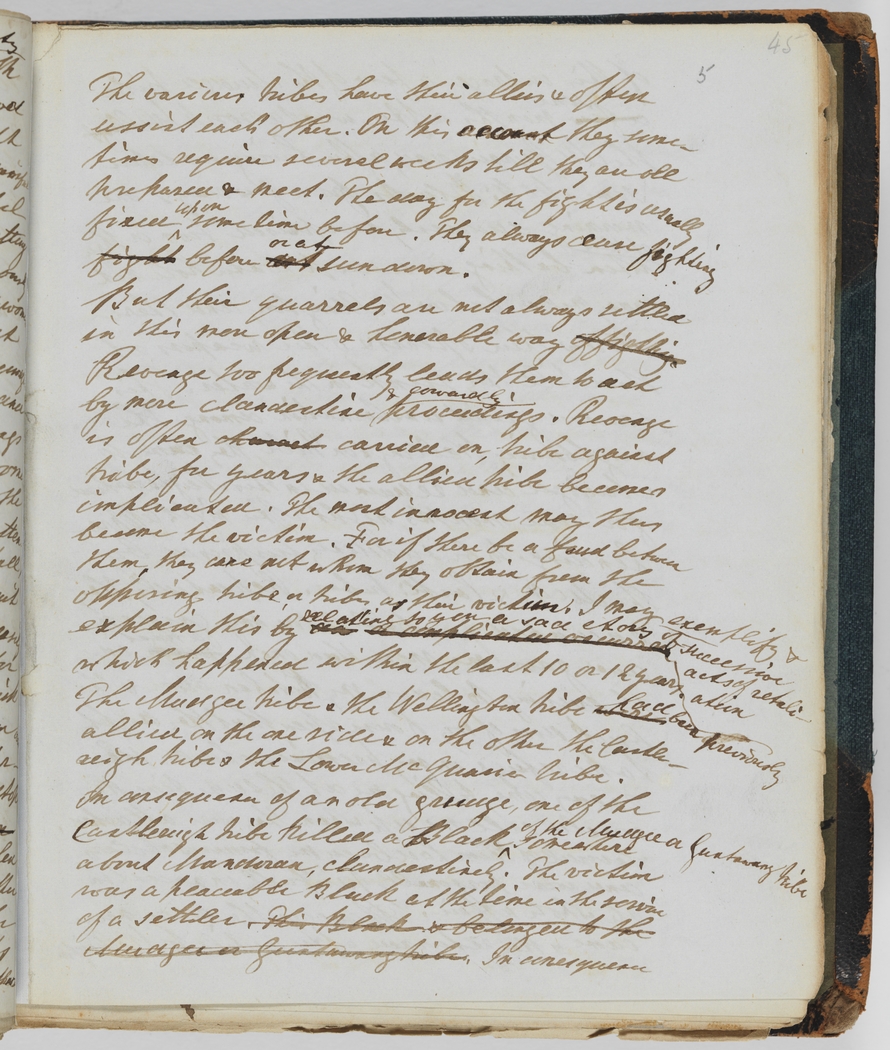 45
5
The various tribes have their allies & often
assist each other. On this account they some-
times require several weeks till they are all
prepared & meet. The day for the fight is usually
fixed upon some time before. They always cease fighting
fight before or at sundown.
But their quarrels are not always settled
in this more open & honorable way of fighting.
Revenge too frequently leads them to act
by more clandestine & cowardly proceedings. Revenge
is often carried on, tribe against
tribe, for years & the allied tribe becomes
implicated. The most innocent may thus
become the victim. For if there be a feud between
them, they care not whom they obtain from the
opposing tribe or tribes as their victims. I may exemplify &
explain this by relating to you a sad story of successive acts of retali-
ation
which happened within the last 10 or 12 years
The Mudgee tribe & the Wellington tribe had been previously
allied on the one side & on the other the Castle-
reigh tribe & the Lower McQuarie tribe.
In consequence of an old grudge, one of the
Castleeigh tribe killed a Black of the Mudgee or Guntawang tribe
about Mandoran, clandestinely. The victim
was a peaceable Black at the time in the service
of a settler. This Black & belonged to the
Mudgee or Guntawang tribe. In consequence